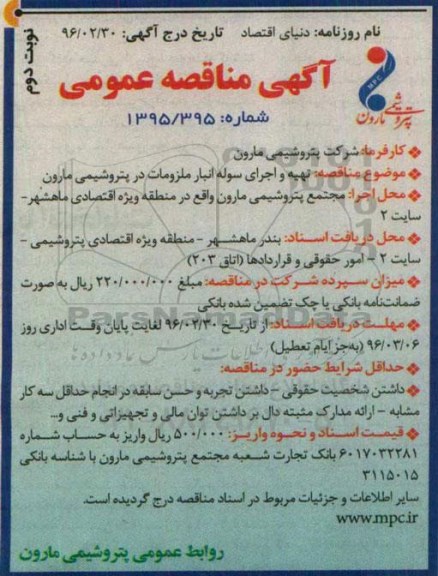 نام روزنامه: دنیای اقتصاد تاریخ درج آگهی: ۹۶/۰۲/۳۰
نوبت دوم
آگهی مناقصه عمومی
MPC
پتروشیمی مارون
شماره: ۱۳۹۵/۳۹۵
کارفرما: شرکت پتروشیمی مارون
موضوع مناقصه: تهیه و اجرای سوله انبار ملزومات در پتروشیمی مارون
محل اجرا: مجتمع پتروشیمی مارون واقع در منطقه ویژه اقتصادی ماهشهر-
سایت ۲
محل دریافت اسناد: بندر ماهشهر - منطقه ویژه اقتصادی پتروشیمی -
سایت ۲ - امور حقوقی و قراردادها (اتاق ۲۰۳)
میزان سپرده شرکت در مناقصه: مبلغ ۲۲۰/۰۰۰/۰۰۰ ریال به صورت
ضمانت‌نامه بانکی یا چک تضمین شده بانکی
مهلت دریافت اسناد: از تاریخ ۹۶/۰۲/۳۰ لغایت پایان وقت اداری روز
۹۶/۰۳/۰۶ (به‌جز ایام تعطیل)
حداقل شرایط حضور در مناقصه:
داشتن شخصیت حقوقی - داشتن تجربه و حسن سابقه در انجام حداقل سه کار
مشابه - ارائه مدارک مثبته دال بر داشتن توان مالی و تجهیزاتی و فنی و...
قیمت اسناد و نحوه واریز: ۵۰۰/۰۰۰ ریال واریز به حساب شماره
۶۰۱۷۰۳۲۲۸۱ بانک تجارت شعبه مجتمع پتروشیمی مارون با شناسه بانکی
۳۱۱۵۰۱۵
سایر اطلاعات و جزئیات مربوط در اسناد مناقصه درج گردیده است.
www.mpc.ir
روابط عمومی پتروشیمی مارون
ParsNamadData